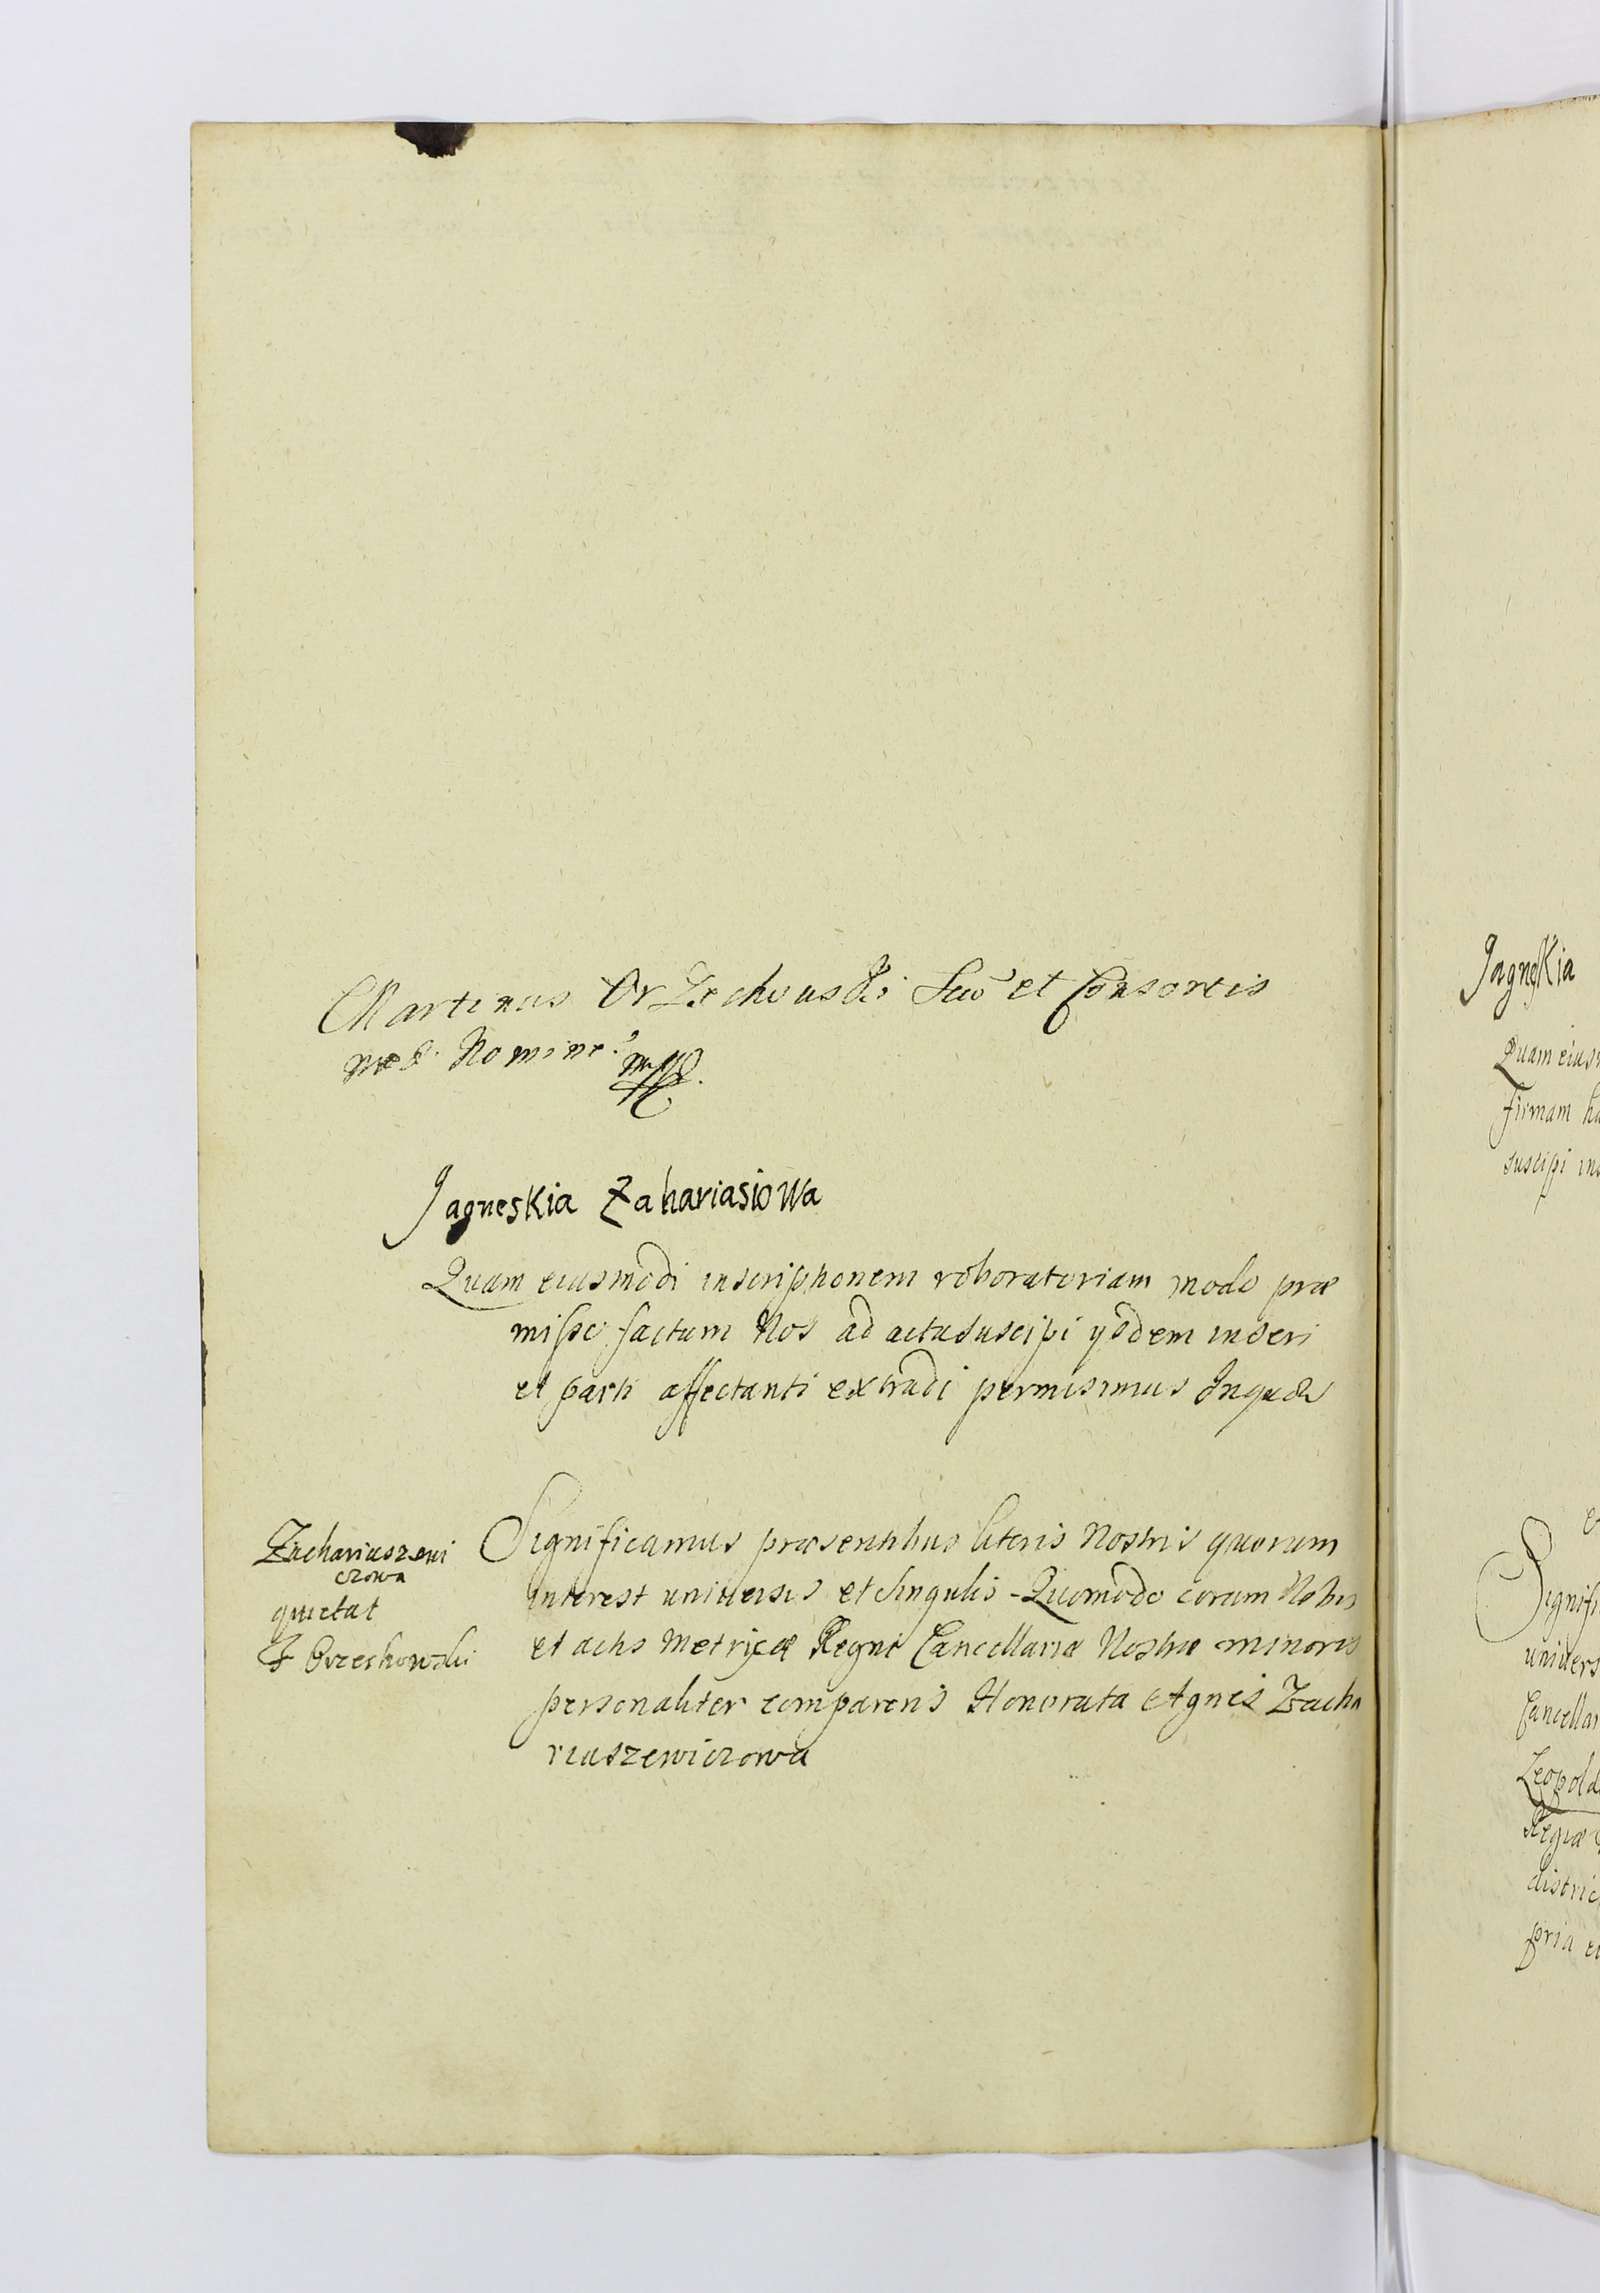 Martinus Orzechouski Suo et Consortis
meæ Nomine mpp.
Jagneskia Zahariasiowa
Quam eiusmodi inscriptionem roboratoriam modo præ
misso factam Nos ad acta suscipi ysdem inseri
et parti affectanti extradi permisimus In quor
Zachariaszewi
czowa
quietat
Orzechowski
Significamus præsentibus literis Nostris quorum
interest uniuersis et singulis Quomodo coram Nobis
et actis Metricæ Regni Cancellariæ Nostræ minoris
personaliter comparens Honorata Agnes Zacha
riaszewiczowa
Jagneskia
Quam eius
firmam ha
suscipi ins
Signifi
uniuers
Cancellar
Leopold
Regiæ
distric
pria